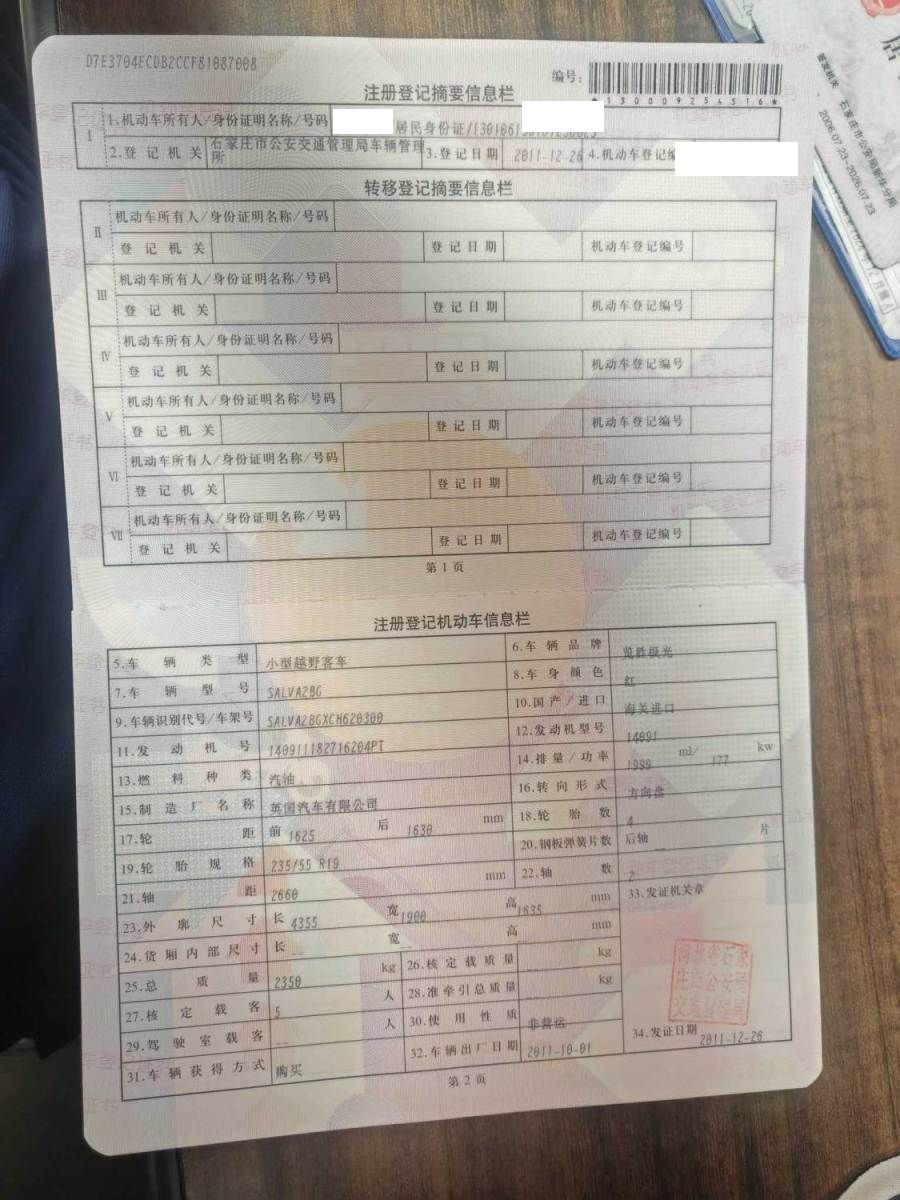 D7E3704ECDB2CCF81087008
编号:
*130009254316*
注册登记摘要信息栏
I 1.机动车所有人/身份证明名称/号码 居民身份证/
2.登记机关 石家庄市公安交通管理局车辆管理所 3.登记日期 2011-12-26 4.机动车登记编
转移登记摘要信息栏
II 机动车所有人/身份证明名称/号码
登记机关 登记日期 机动车登记编号
III 机动车所有人/身份证明名称/号码
登记机关 登记日期 机动车登记编号
IV 机动车所有人/身份证明名称/号码
登记机关 登记日期 机动车登记编号
V 机动车所有人/身份证明名称/号码
登记机关 登记日期 机动车登记编号
VI 机动车所有人/身份证明名称/号码
登记机关 登记日期 机动车登记编号
VII 机动车所有人/身份证明名称/号码
登记机关 登记日期 机动车登记编号
第1页
注册登记机动车信息栏
5.车辆类型 小型越野客车 6.车辆品牌 览胜极光
7.车辆型号 SALVA2BG 8.车身颜色 红
9.车辆识别代号/车架号 SALVA2BGXCH620300 10.国产/进口 海关进口
11.发动机号 140911182716204PT 12.发动机型号 14091
13.燃料种类 汽油 14.排量/功率 1999 ml/ 177 kw
15.制造厂名称 英国汽车有限公司 16.转向形式 方向盘
17.轮距 前 1625 后 1630 mm 18.轮胎数 4
19.轮胎规格 235/55 R19 20.钢板弹簧片数 后轴 -- 片
21.轴距 2660 mm 22.轴数 2
23.外廓尺寸 长 4355 宽 1900 高 1635 mm 33.发证机关章
24.货厢内部尺寸 长 -- 宽 -- 高 -- mm
25.总质量 2350 kg 26.核定载质量 -- kg
27.核定载客 5 人 28.准牵引总质量 -- kg
29.驾驶室载客 -- 人 30.使用性质 非营运
31.车辆获得方式 购买 32.车辆出厂日期 2011-10-01 34.发证日期 2011-12-26
河北省石家
庄市公安局
第2页
签发机关 石家庄市公安局
2006.07.23-2026.07.23
居